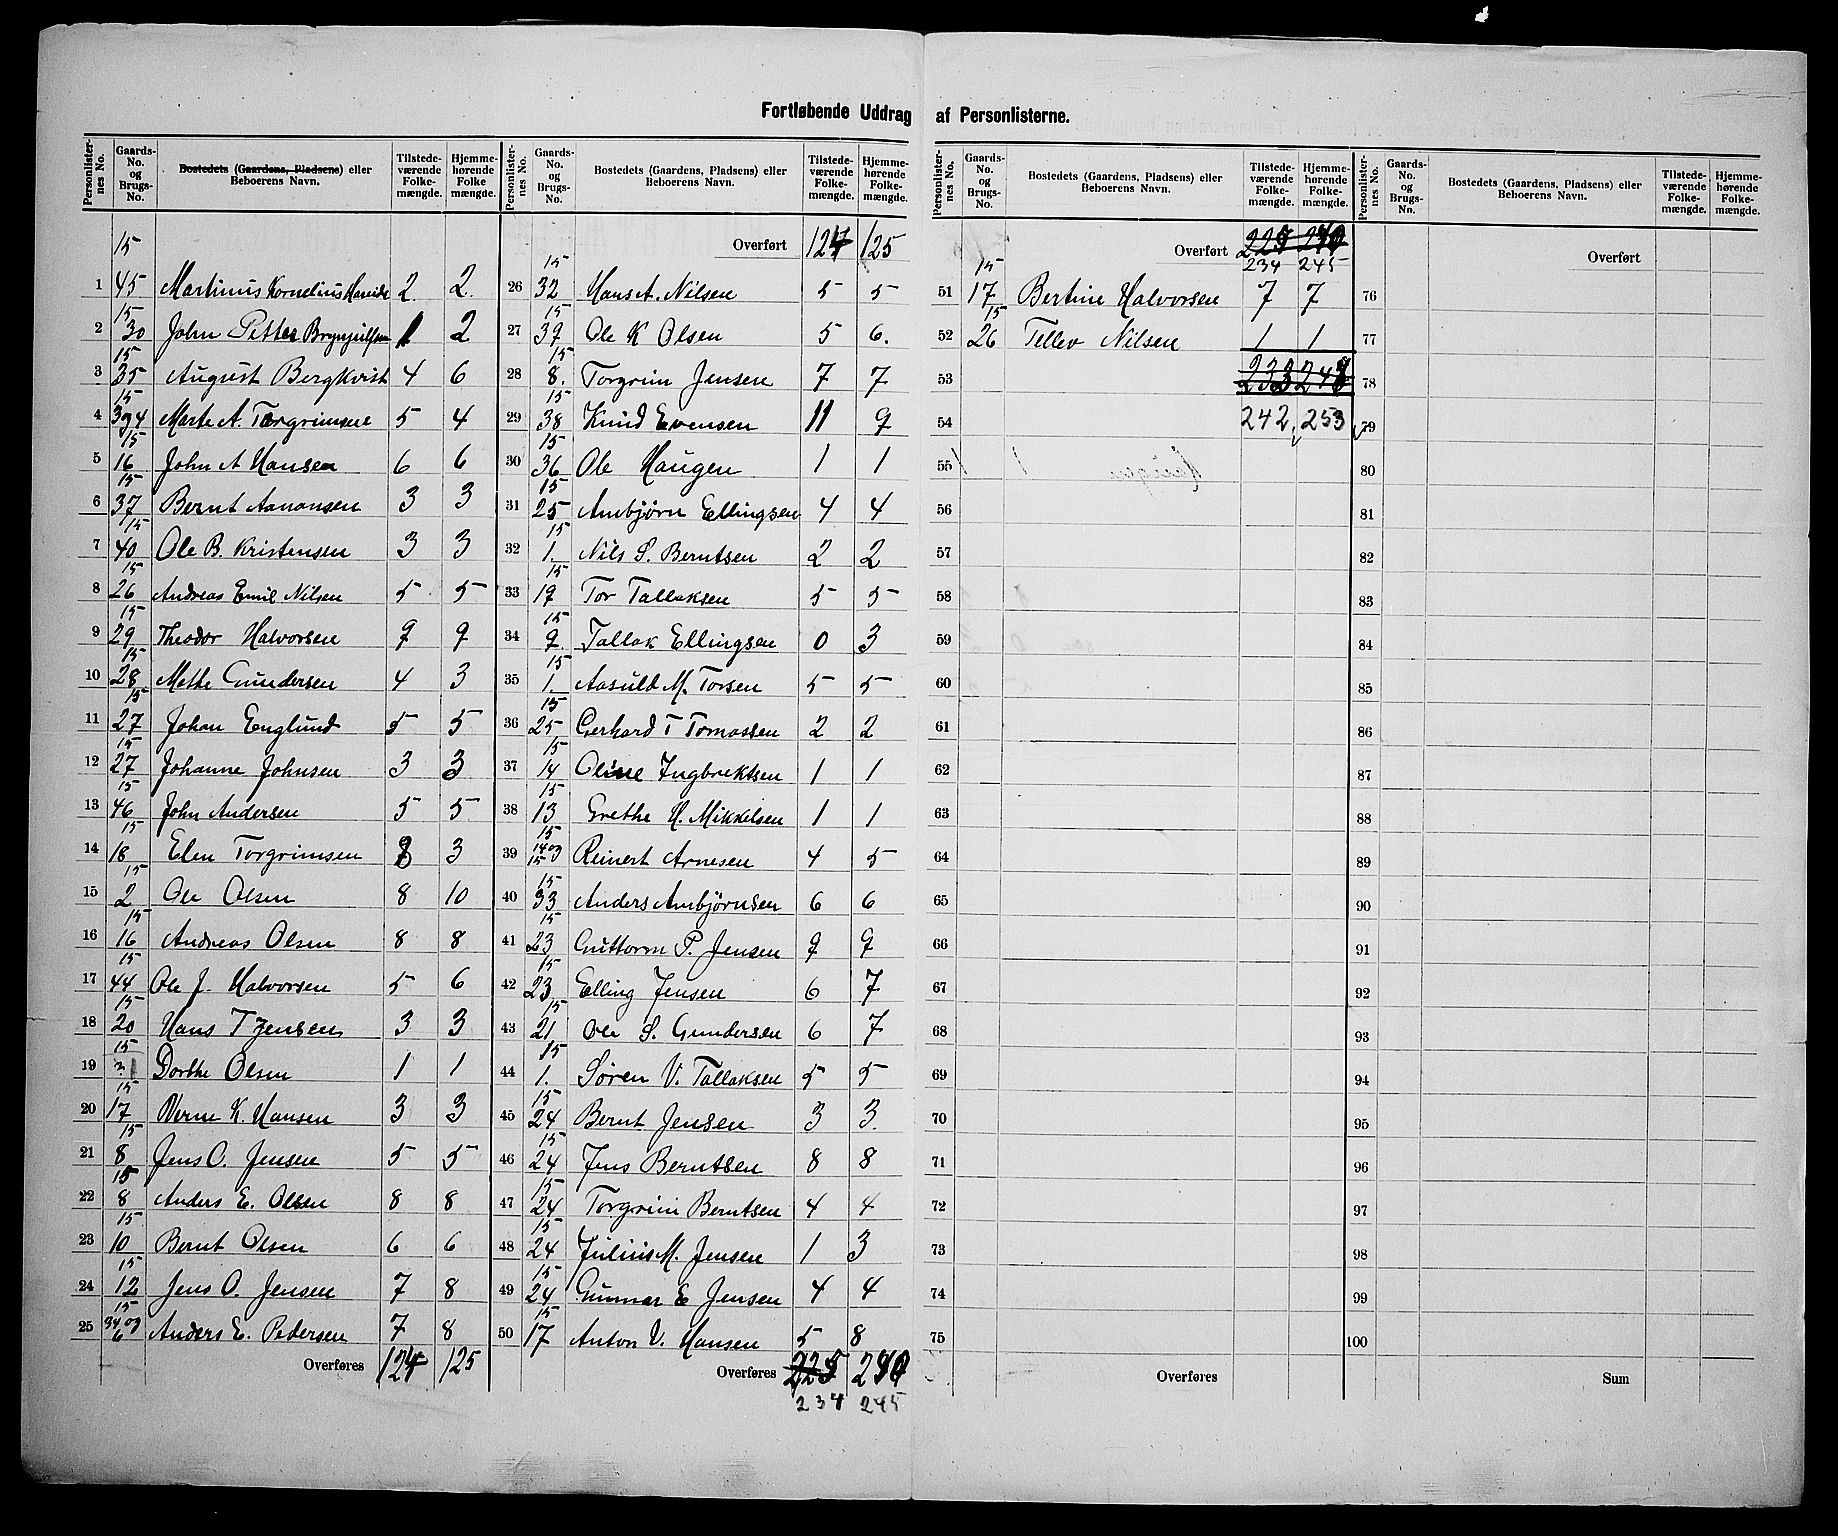 Fortløbende Uddrag af Personlisterne.
Personlisternes No. | Gaards-No. og Brugs-No. | Bostedets (Gaardens, Pladsens) eller Beboerens Navn. | Tilstedeværende Folkemængde. | Hjemmehørende Folkemængde.
1 15/45 Martinus Kornelius 2. 2.
2 15/30 John Petter Brynjulfsen 1 2
3 15/35 August Bergkvist 4 6
4 15/ Marte A. Torgrimsene 5 4
5 15/16 John A Hansen 6 6
6 15/37 Bernt Aanonsen 3 3
7 15/40 Ole B. Kristensen 3 3
8 15/26 Andreas Emil Nilsen 5 5
9 15/29 Theodor Halvorsen 9 9
10 15/28 Methe Gundersen 4 3
11 15/27 Johan Englund 5 5
12 15/27 Johanne Johnsen 3 3
13 15/46 John Andersen 5 5
14 15/18 Elen Torgrimsen 3
15 15/2 Ole Olsen 8 10
16 15/16 Andreas Olsen 8 8
17 15/44 Ole J. Halvorsen 5 6
18 15/20 Hans T Jensen 3 3
19 15/ Dorthe Olsen 1 1
20 15/17 K. Hansen 3 3
21 15/8 Jens O. Jensen 5 5
22 15/8 Anders E. Olsen 8 8
23 15/10 Bernt Olsen 6 6
24 15/12 Jens O. Jensen 7 8
25 15/34 og 6 Anders E. Pedersen 7 8
Overføres 124 125
Personlisternes No. | Gaards-No. og Brugs-No. | Bostedets (Gaardens, Pladsens) eller Beboerens Navn. | Tilstedeværende Folkemængde. | Hjemmehørende Folkemængde.
Overført 124 125
26 15/32 Hans A. Nilsen 5 5
27 15/39 Ole K Olsen 5 6.
28 15/8. Torgrim Jensen 7 7
29 15/38 Knud Evensen 11 9
30 15/36 Ole Haugen 1 1
31 15/25 Ambjørn Ellingsen 4 4
32 15/1. Nils S. Berntsen 2 2
33 15/19 Tor Tallaksen 5 5
34 15/9. Tallak Ellingsen 0 3
35 15/1. Aasuld M. Torsen 5 5
36 15/25 Gerhard T Tomassen 2 2
37 15/14 Oline Ingbrektsen 1 1
38 15/13 Grethe H. Mikkelsen 1 1
39 15/14 og 15 Reinert Arnesen 4 5
40 15/33 Anders Ambjørnsen 6 6
41 15/23 Guttorm P. Jensen 9 9
42 15/23 Elling Jensen 6 7
43 15/21 Ole S. Gundersen 6 7
44 15/1. Søren V. Tallaksen 5 5
45 15/24 Bernt Jensen 3 3.
46 15/24 Jens Berntsen 8 8
47 15/24 Torgrim Berntsen 4 4
48 15/24 Julius M. Jensen 1 3
49 15/24 Gunnar E Jensen 4 4
50 15/17 Anton V. Hansen 5 8
Overføres 225
234 245
Personlisternes No. | Gaards-No. og Brugs-No. | Bostedets (Gaardens, Pladsens) eller Beboerens Navn. | Tilstedeværende Folkemængde. | Hjemmehørende Folkemængde.
Overført
234 245
51 15/17 Bertine Halvorsen 7 7
52 15/26 Tellev Nilsen 1 1
53 233
54 242 253
55
56
57
58
59
60
61
62
63
64
65
66
67
68
69
70
71
72
73
74
75
Overføres
Personlisternes No. | Gaards-No. og Brugs-No. | Bostedets (Gaardens, Pladsens) eller Beboerens Navn. | Tilstedeværende Folkemængde. | Hjemmehørende Folkemængde.
Overført
76
77
78
79
80
81
82
83
84
85
86
87
88
89
90
91
92
93
94
95
96
97
98
99
100
Sum